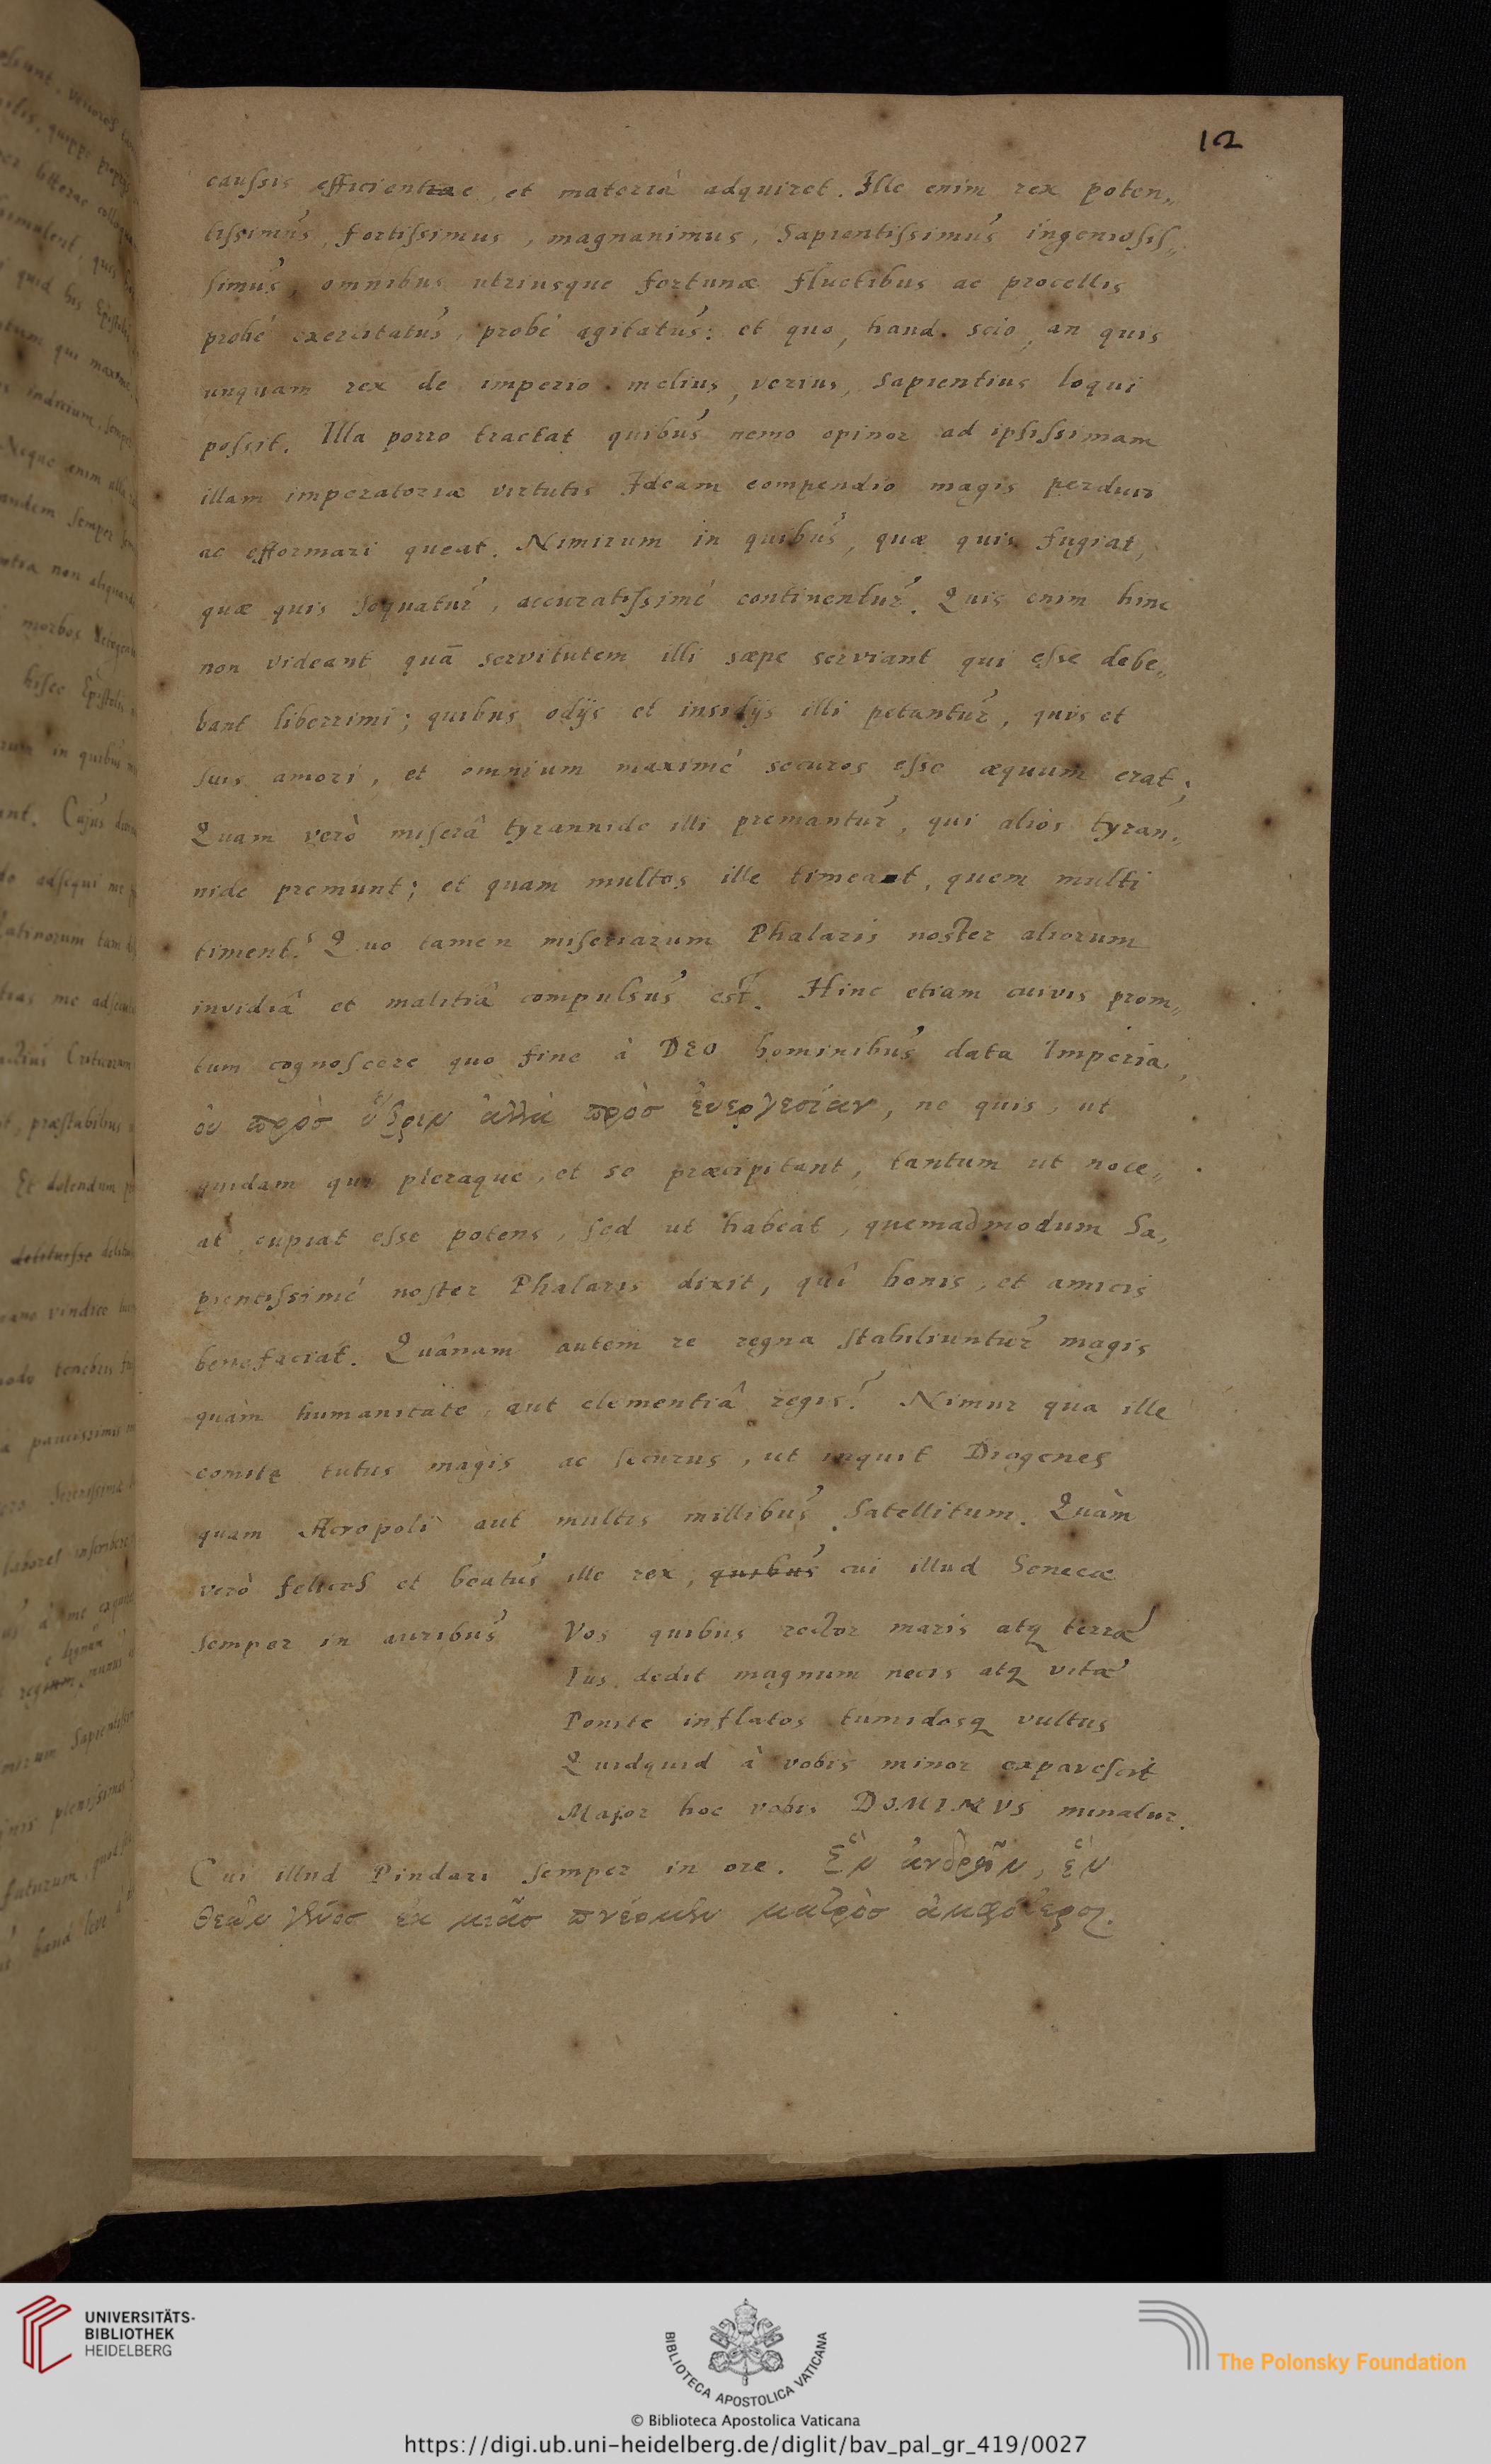 12
caussis efficientiae, et materiâ adquiret. Ille enim rex poten„
tissimus, fortissimus, magnanimus, Sapientissimus ingeniosis„
simus, omnibus utriusque fortunæ fluctibus ac procellis
probé exercitatus, probé agitatus: et quo, haud scio, an quis
unquam rex de imperio melius, verius, sapientius loqui
possit. Illa porro tractat quibus nemo opinor ad ipsissimam
illam imperatoriæ virtutis Ideam compendio magis perduci
ac efformari queat. Nimirum in quibus, quæ quis fugiat,
quæ quis sequatur, accuratissimé continentur. Quis enim hinc
non videant quā servitutem illi sæpe serviant qui esse debe„
bant liberrimi; quibus odijs et insidijs illi petantur, quis et
suis amori, et omnium maximé securos esse æquum erat;
Quam verò miserâ tyrannide illi premantur, qui alios tyran„
nide premunt; et quam multos ille timeat, quem multi
timent? Quo tamen miseriarum Phalaris noster aliorum
invidiâ et malitiâ compulsus est. Hinc etiam cuivis prom„
tum cognoscere quo fine à DEO hominibus data Imperia,
ὀυ πρὸσ ὕβριν ἀλλὰ πρὸσ ἐυεργεσίαν, ne quis, ut
quidam qui pleraque, et se præcipitant, tantum ut noce„
at, cupiat esse potens, sed ut habeat, quemadmodum Sa„
pientissimé noster Phalaris dixit, quî bonis, et amicis
benefaciat. Quânam autem re regna stabiliuntur magis
quàm humanitate, aut clementiâ regis? Nimir qua ille
comite tutus magis ac securus, ut inquit Diogenes
quam Acropoli aut multis millibus Satellitum. Quàm
verò felix et beatus ille rex, quibus cui illud Senecæ
semper in auribus Vos quibus rector maris atq terræ
Ius dedit magnum necis atq vitæ
Ponite inflatos tumidosq vultus
Quidquid à vobis minor expavescit
Major hoc vobis DOMINVS minatur.
Cui illud Pindari semper in ore. Ἓν ἀνδρῶν, ἓν
θεῶν γένοσ ἐκ μιᾶσ πνέομεν ματρὸσ ἀμφότεροι.
UNIVERSITÄTS-
BIBLIOTHEK
HEIDELBERG
BIBLIOTECA APOSTOLICA VATICANA
The Polonsky Foundation
© Biblioteca Apostolica Vaticana
https://digi.ub.uni-heidelberg.de/diglit/bav_pal_gr_419/0027